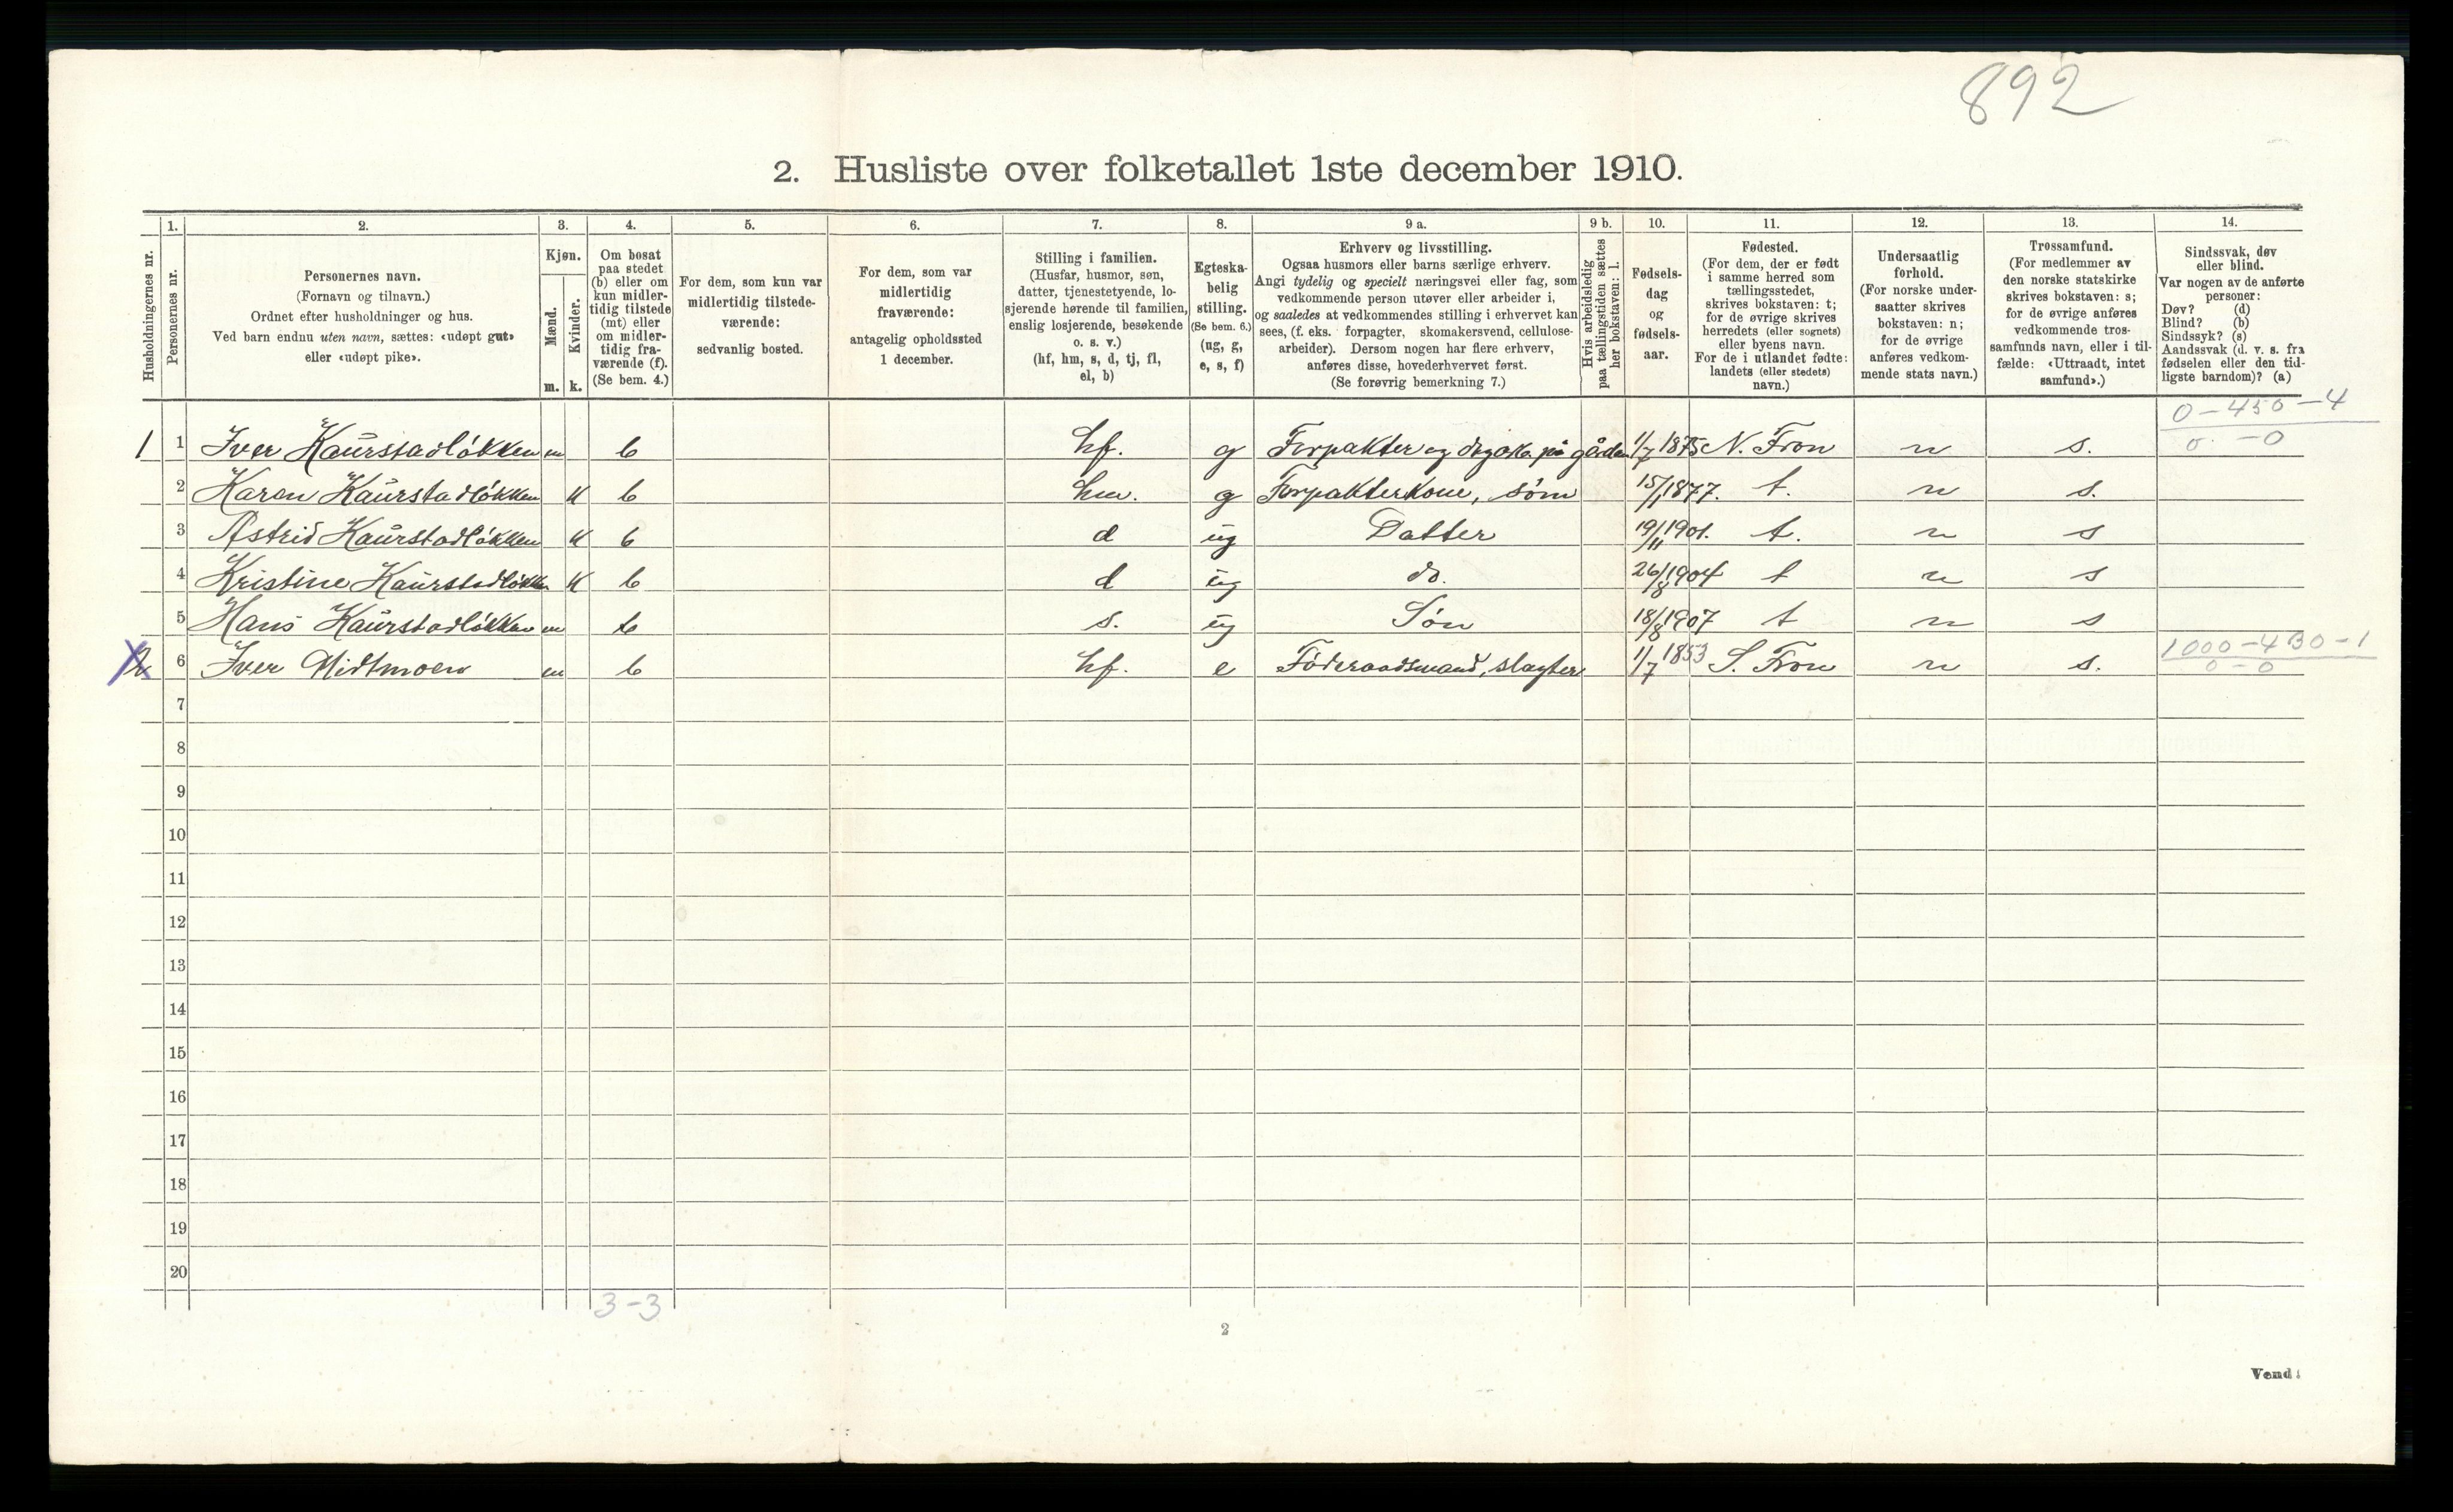 892
2. Husliste over folketallet 1ste december 1910.
1. 2. 3. 4. 5. 6. 7. 8. 9 a. 9 b. 10. 11. 12. 13. 14.
Husholdningernes nr.
Personernes nr.
Personernes navn.
(Fornavn og tilnavn.)
Ordnet efter husholdninger og hus.
Ved barn endnu uten navn, sættes: «udøpt gut»
eller «udøpt pike».
Kjøn.
Mænd.
Kvinder.
m. k.
Om bosat
paa stedet
(b) eller om
kun midler-
tidig tilstede
(mt) eller
om midler-
tidig fra-
værende (f).
(Se bem. 4.)
For dem, som kun var
midlertidig tilstede-
værende:
sedvanlig bosted.
For dem, som var
midlertidig
fraværende:
antagelig opholdssted
1 december.
Stilling i familien.
(Husfar, husmor, søn,
datter, tjenestetyende, lo-
sjerende hørende til familien,
enslig losjerende, besøkende
o. s. v.)
(hf, hm, s, d, tj, fl,
el, b)
Egteska-
belig
stilling.
(Se bem. 6.)
(ug, g,
e, s, f)
Erhverv og livsstilling.
Ogsaa husmors eller barns særlige erhverv.
Angi tydelig og specielt næringsvei eller fag, som
vedkommende person utøver eller arbeider i,
og saaledes at vedkommendes stilling i erhvervet kan
sees, (f. eks. forpagter, skomakersvend, cellulose-
arbeider). Dersom nogen har flere erhverv,
anføres disse, hovederhvervet først.
(Se forøvrig bemerkning 7.)
Hvis arbeidsledig
paa tællingstiden sættes
her bokstaven: l.
Fødsels-
dag
og
fødsels-
aar.
Fødested.
(For dem, der er født
i samme herred som
tællingsstedet,
skrives bokstaven: t;
for de øvrige skrives
herredets (eller sognets)
eller byens navn.
For de i utlandet fødte:
landets (eller stedets)
navn.)
Undersaatlig
forhold.
(For norske under-
saatter skrives
bokstaven: n;
for de øvrige
anføres vedkom-
mende stats navn.)
Trossamfund.
(For medlemmer av
den norske statskirke
skrives bokstaven: s;
for de øvrige anføres
vedkommende tros-
samfunds navn, eller i til-
fælde: «Uttraadt, intet
samfund».)
Sindssvak, døv
eller blind.
Var nogen av de anførte
personer:
Døv? (d)
Blind? (b)
Sindssyk? (s)
Aandssvak (d. v. s. fra
fødselen eller den tid-
ligste barndom)? (a)
0-450-4
1 1 Iver Kaurstadløkken m b hf. g Forpakter og på gården 1/7 1875 N. Fron n s. 0-0
2 Karen Kaurstadløkken k b hm. g Forpakterkone, søm 15/1 1877. t. n s.
3 Astrid Kaurstadløkken k b d ug Datter 19/11 1901. t. n s
4 Kristine Kaurstadløkken k b d ug do. 26/8 1904 t n s
5 Hans Kaurstadløkken m b s. ug Søn 18/8 1907 t n s
1000-430-1
2 6 Iver Midtmoen m b hf. e Føderaadsmand, slagter 1/7 1853 S. Fron n s. 0-0
7
8
9
10
11
12
13
14
15
16
17
18
19
20
3-3
2
Vend!